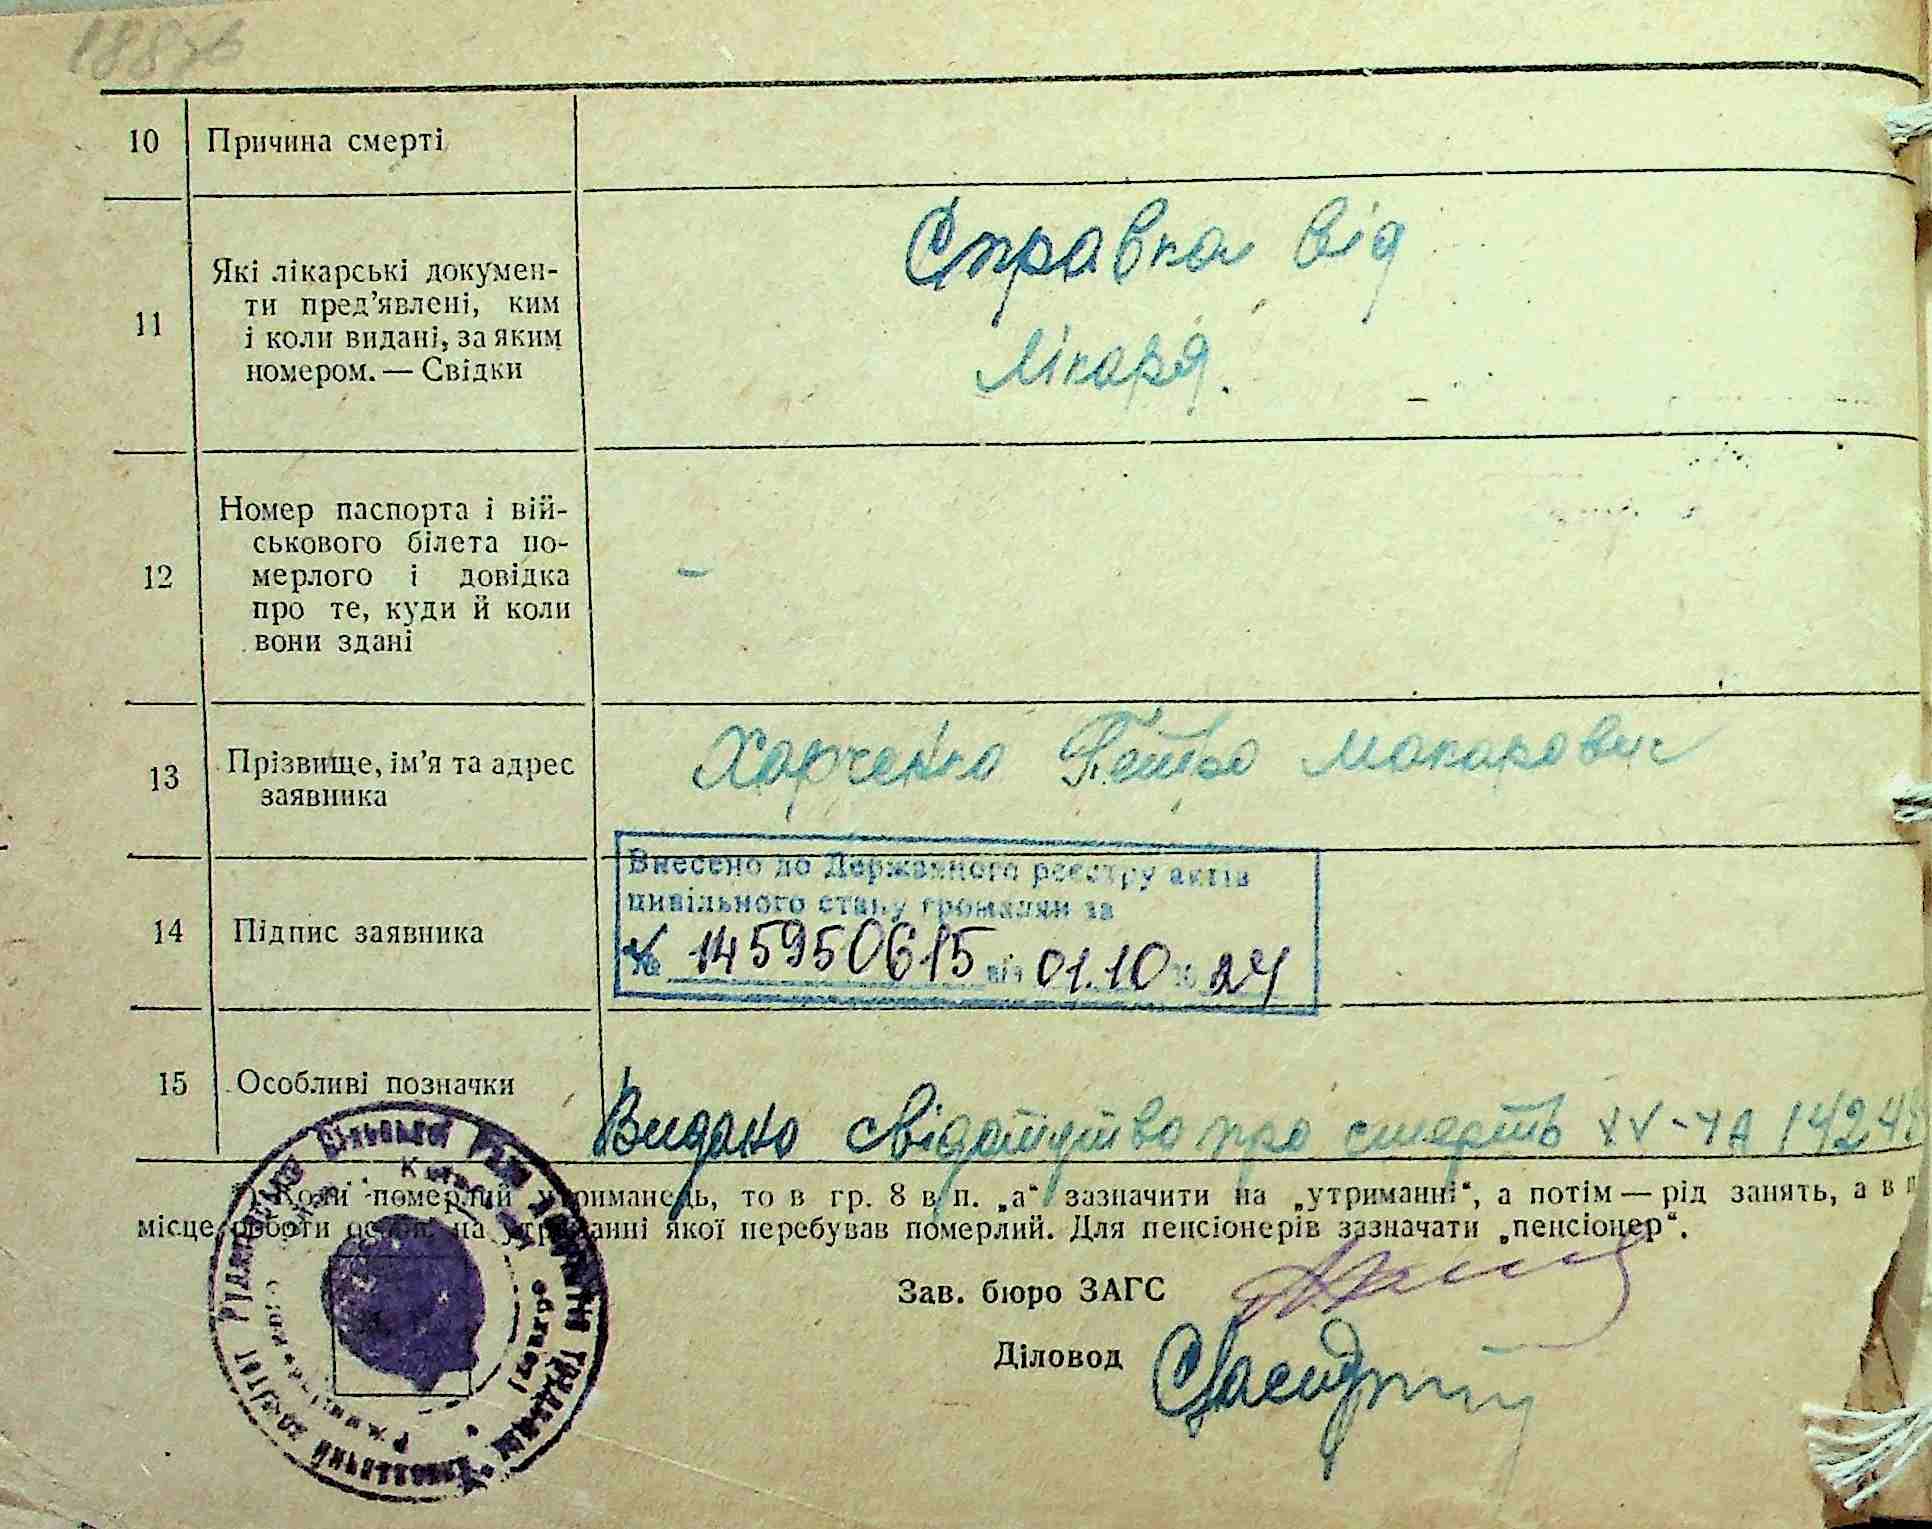 10 Причина смерті
11 Які лікарські докумен-
ти пред’явлені, ким
і коли видані, за яким
номером. — Свідки
Справка від
лікаря.
12 Номер паспорта і вій-
ськового білета по-
мерлого і довідка
про те, куди й коли
вони здані
–
13 Прізвище, ім’я та адрес
заявника
Харченко Петро Макарович
14 Підпис заявника
Внесено до Державного реєстру актів
цивільного стану громадян за
№ 145950615 від 01.10 20 24
15 Особливі позначки
Видано свідотство про смерть
Коли померлий утриманець, то в гр. 8 в п. „а“ зазначити на „утриманні“, а потім — рід занять, а в п
місце роботи особи, на утриманні якої перебував померлий. Для пенсіонерів зазначати „пенсіонер“.
Зав. бюро ЗАГС
Діловод